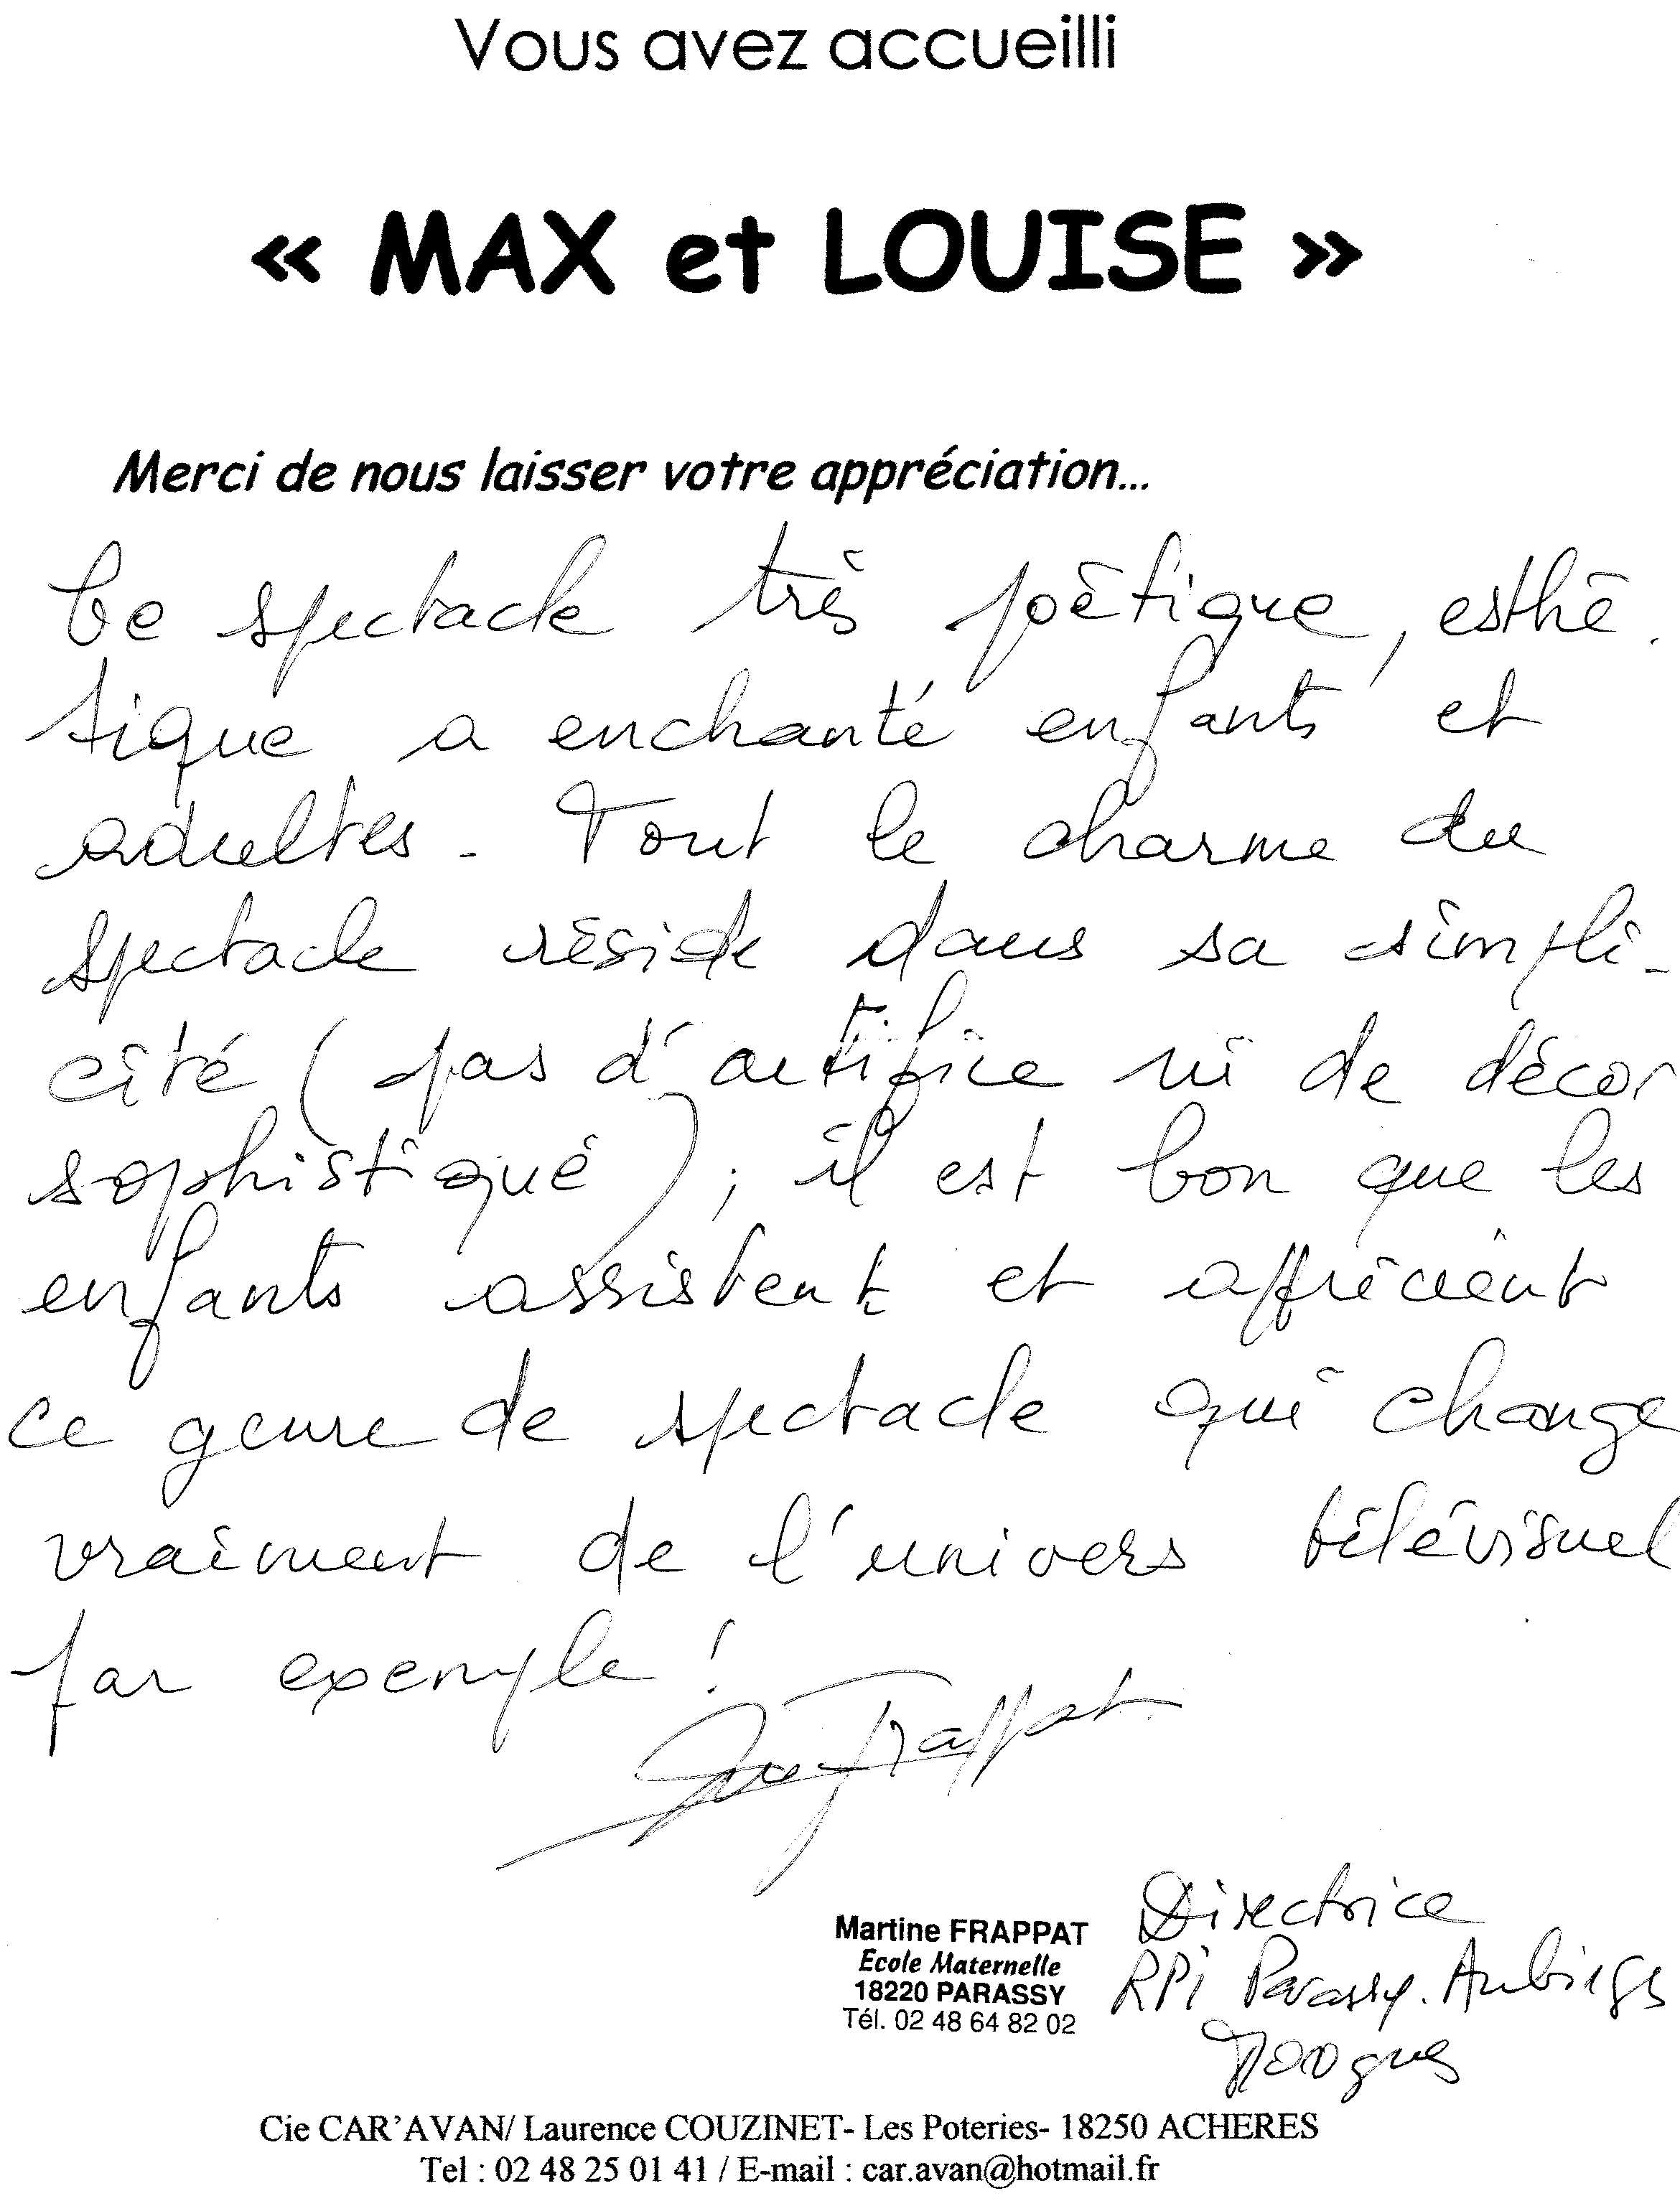 Vous avez accueilli
« MAX et LOUISE »
Merci de nous laisser votre appréciation...
Ce spectacle très poétique, esthé-
tique a enchanté enfants et
adultes. Tout le charme du
spectacle réside dans sa simpli-
cité (pas d'artifice ni de décor
sophistiqué) ; il est bon que les
enfants assistent et apprécient
ce genre de spectacle qui change
vraiment de l'univers télévisuel
par exemple !
Frappat
Directrice
Martine FRAPPAT
Ecole Maternelle
18220 PARASSY
Tél. 02 48 64 82 02
RPI Parassy. Aubinges
Morogues
Cie CAR'AVAN/ Laurence COUZINET- Les Poteries- 18250 ACHERES
Tel : 02 48 25 01 41 / E-mail : car.avan@hotmail.fr